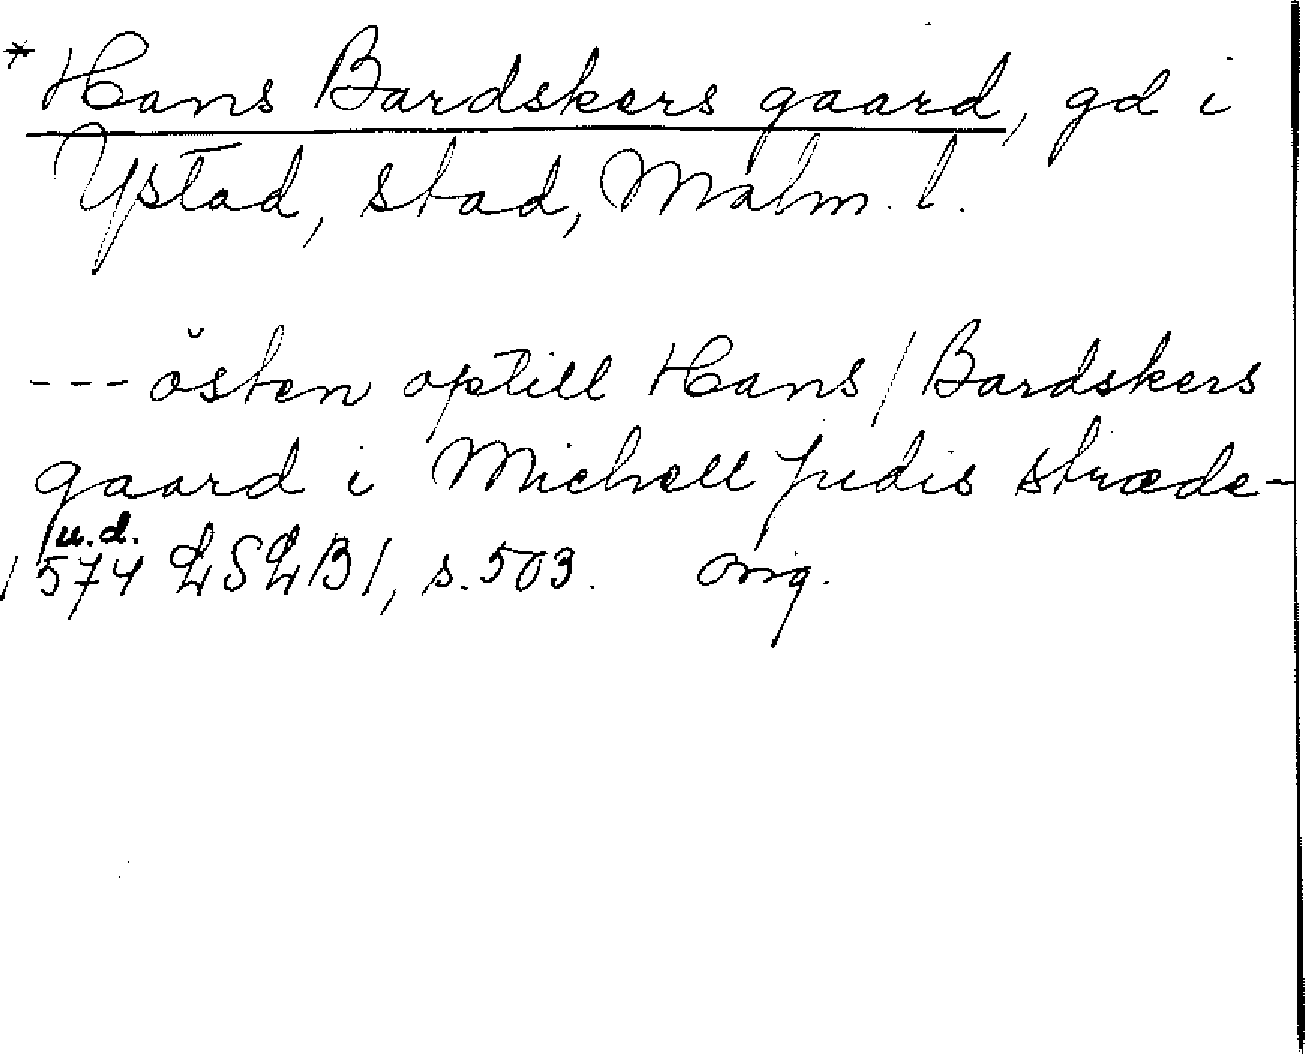 * Hans Bardskers gaard, gd i
Ystad, stad, Malm. l.
--- östen optill Hans / Bardskers
gaard i Michell judis stræde-
u.d.
1574 LSLB1, s. 503. orig.